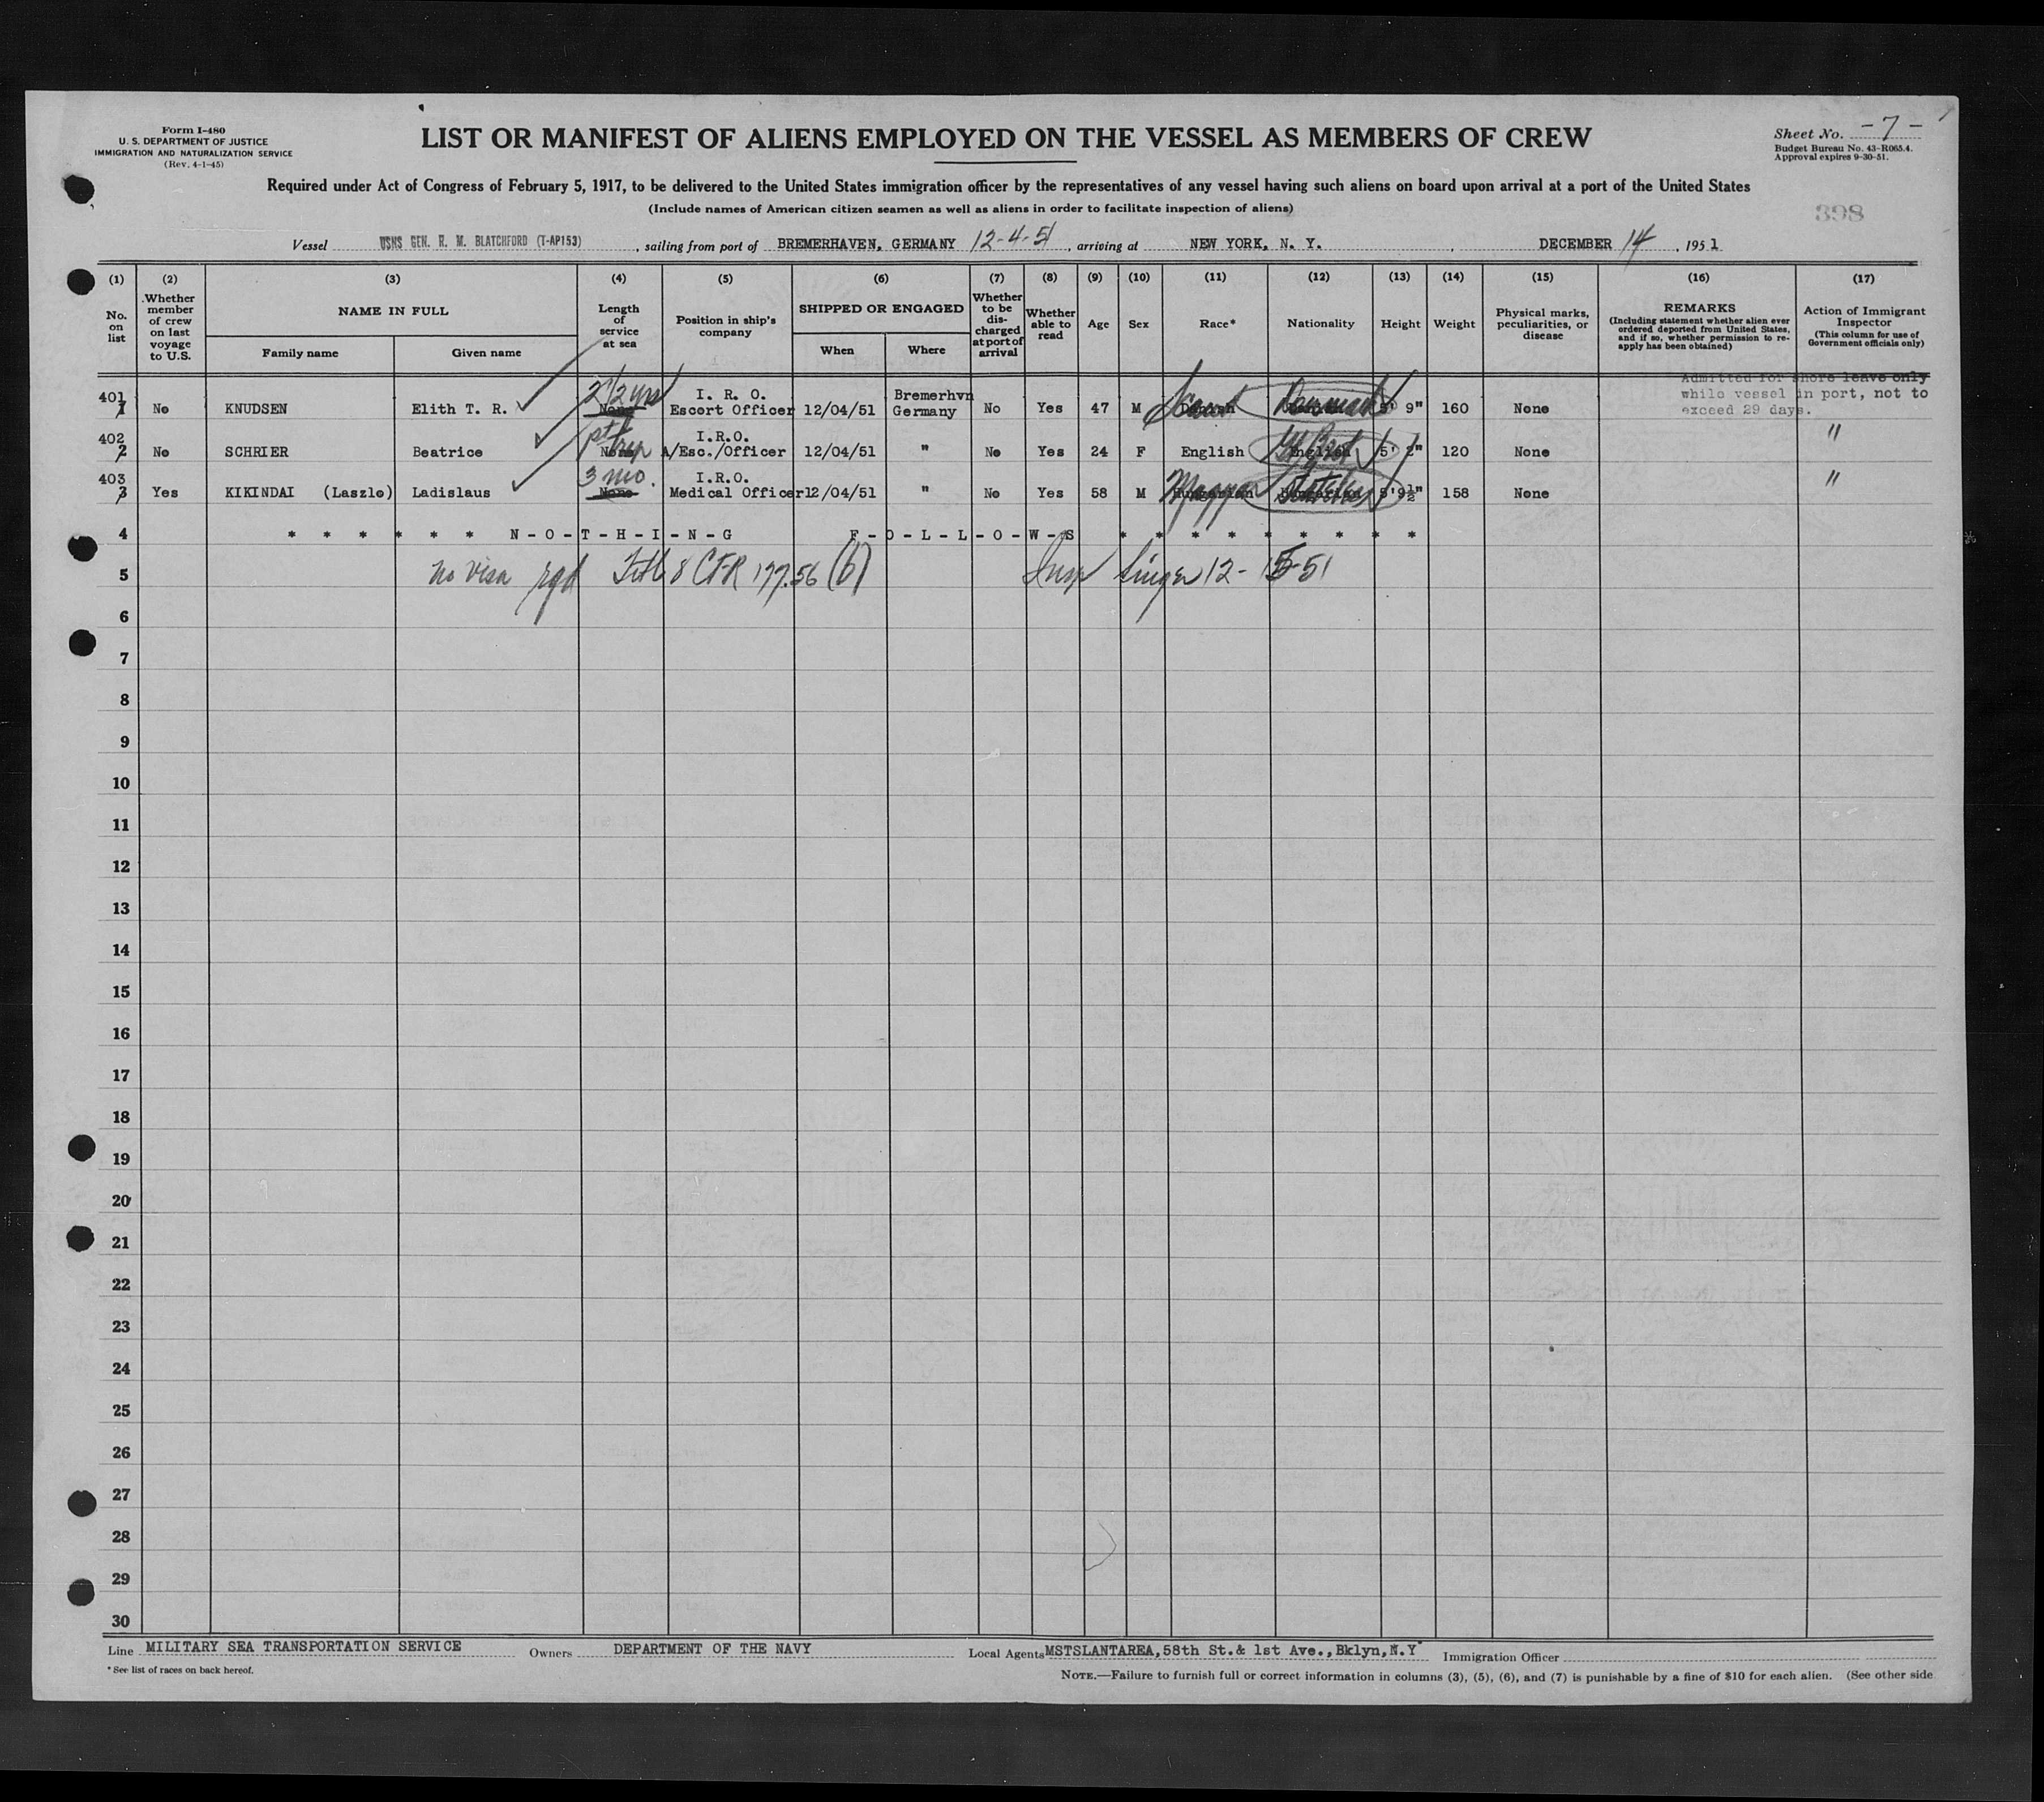 Form I-480
U. S. DEPARTMENT OF JUSTICE
IMMIGRATION AND NATURALIZATION SERVICE
(Rev. 4-1-45)
LIST OR MANIFEST OF ALIENS EMPLOYED ON THE VESSEL AS MEMBERS OF CREW
Sheet No. -7-
Budget Bureau No. 43-R065.4.
Approval expires 9-30-51.
Required under Act of Congress of February 5, 1917, to be delivered to the United States immigration officer by the representatives of any vessel having such aliens on board upon arrival at a port of the United States
(Include names of American citizen seamen as well as aliens in order to facilitate inspection of aliens)
398
Vessel USNS GEN. R. M. BLATCHFORD (T-AP153), sailing from port of BREMERHAVEN, GERMANY 12-4-51, arriving at NEW YORK, N. Y., DECEMBER 14, 1951
(1) (2) (3) (4) (5) (6) (7) (8) (9) (10) (11) (12) (13) (14) (15) (16) (17)
No. on list
Whether member of crew on last voyage to U.S.
NAME IN FULL
Family name
Given name
Length of service at sea
Position in ship's company
SHIPPED OR ENGAGED
When
Where
Whether to be discharged at port of arrival
Whether able to read
Age
Sex
Race*
Nationality
Height
Weight
Physical marks, peculiarities, or disease
REMARKS
(Including statement whether alien ever ordered deported from United States, and if so, whether permission to reapply has been obtained)
Action of Immigrant Inspector
(This column for use of Government officials only)
401 1 No KNUDSEN Elith T. R. 2 1/2 yrs None I. R. O. Escort Officer 12/04/51 Bremerhvn Germany No Yes 47 M Scand Danish Denmark 5' 9" 160 None
Admitted for shore leave only
while vessel in port, not to
exceed 29 days.
402 2 No SCHRIER Beatrice 1st trip None I.R.O. A/Esc./Officer 12/04/51 " No Yes 24 F English Gt Brit English 5' 2" 120 None "
403 3 Yes KIKINDAI (Laszlo) Ladislaus 3 mo. None I.R.O. Medical Officer 12/04/51 " No Yes 58 M Magyar Hungarian Hungarian 5'9½" 158 None "
4 * * * * * * N-O-T-H-I-N-G F-O-L-L-O-W-S * * * * * * * * *
5 no visa rqd Title 8 CFR 177.56 (b) Insp Singer 12-15-51
6
7
8
9
10
11
12
13
14
15
16
17
18
19
20
21
22
23
24
25
26
27
28
29
30
Line MILITARY SEA TRANSPORTATION SERVICE Owners DEPARTMENT OF THE NAVY Local Agents MSTSLANTAREA, 58th St.& 1st Ave., Bklyn, N.Y Immigration Officer
*See list of races on back hereof.
NOTE.—Failure to furnish full or correct information in columns (3), (5), (6), and (7) is punishable by a fine of $10 for each alien. (See other side